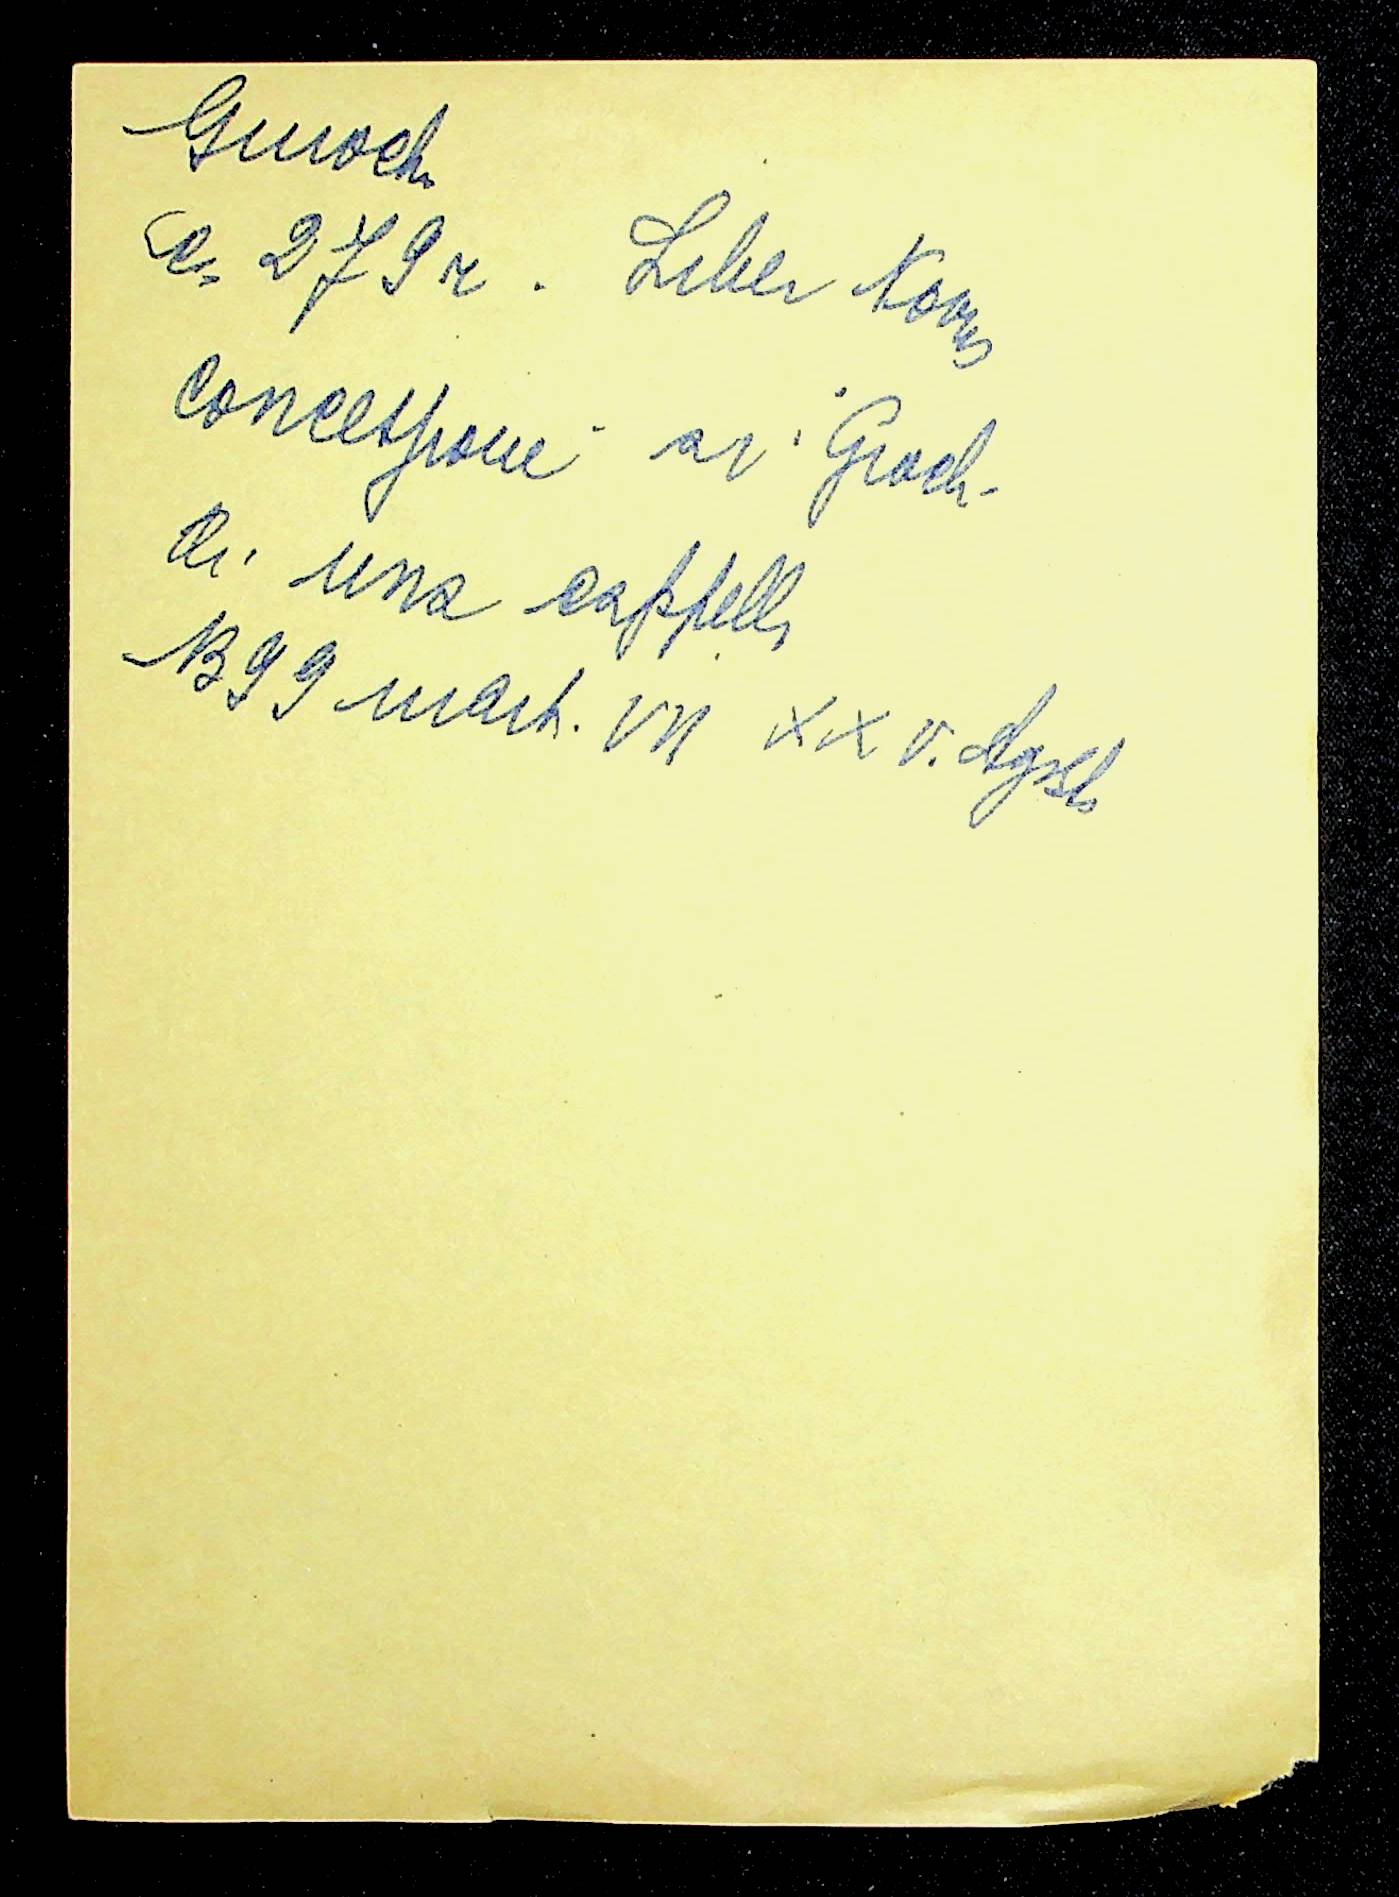 Giuoch.
c. 279 r. Liber Novus
concessione ai Giuoch.
di una cappella
1399 mart. VII XXV. Agsto